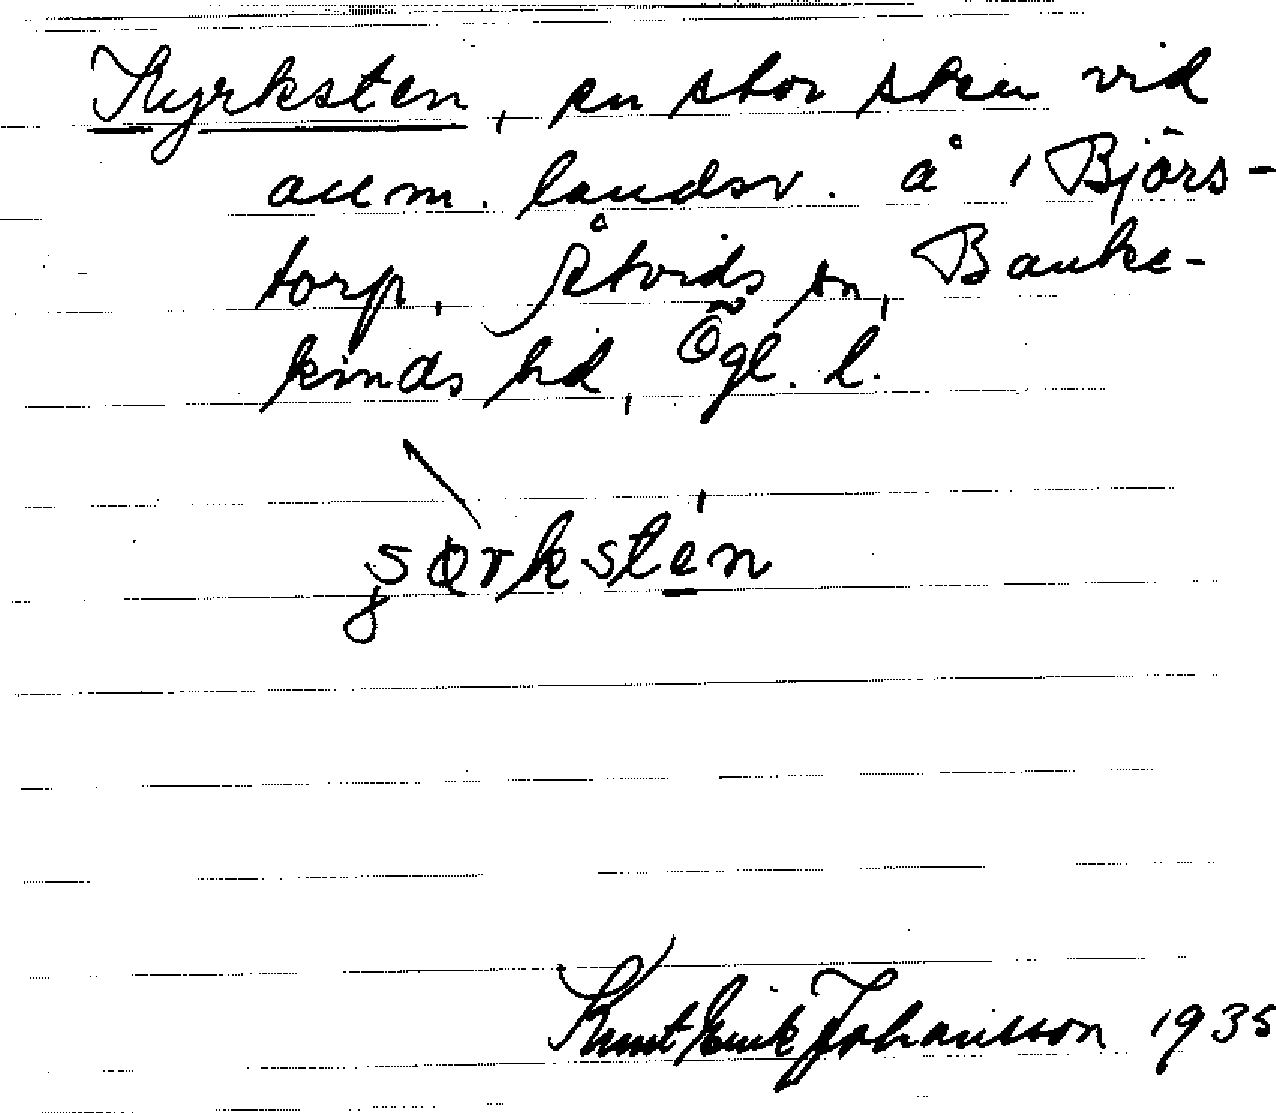 Kyrksten, en stor sten vid
allm. landsv. å i Björs-
torp, Åtvids sn, Banke-
kinds hd, Ögl. l.
Knut Erik Johansson 1935